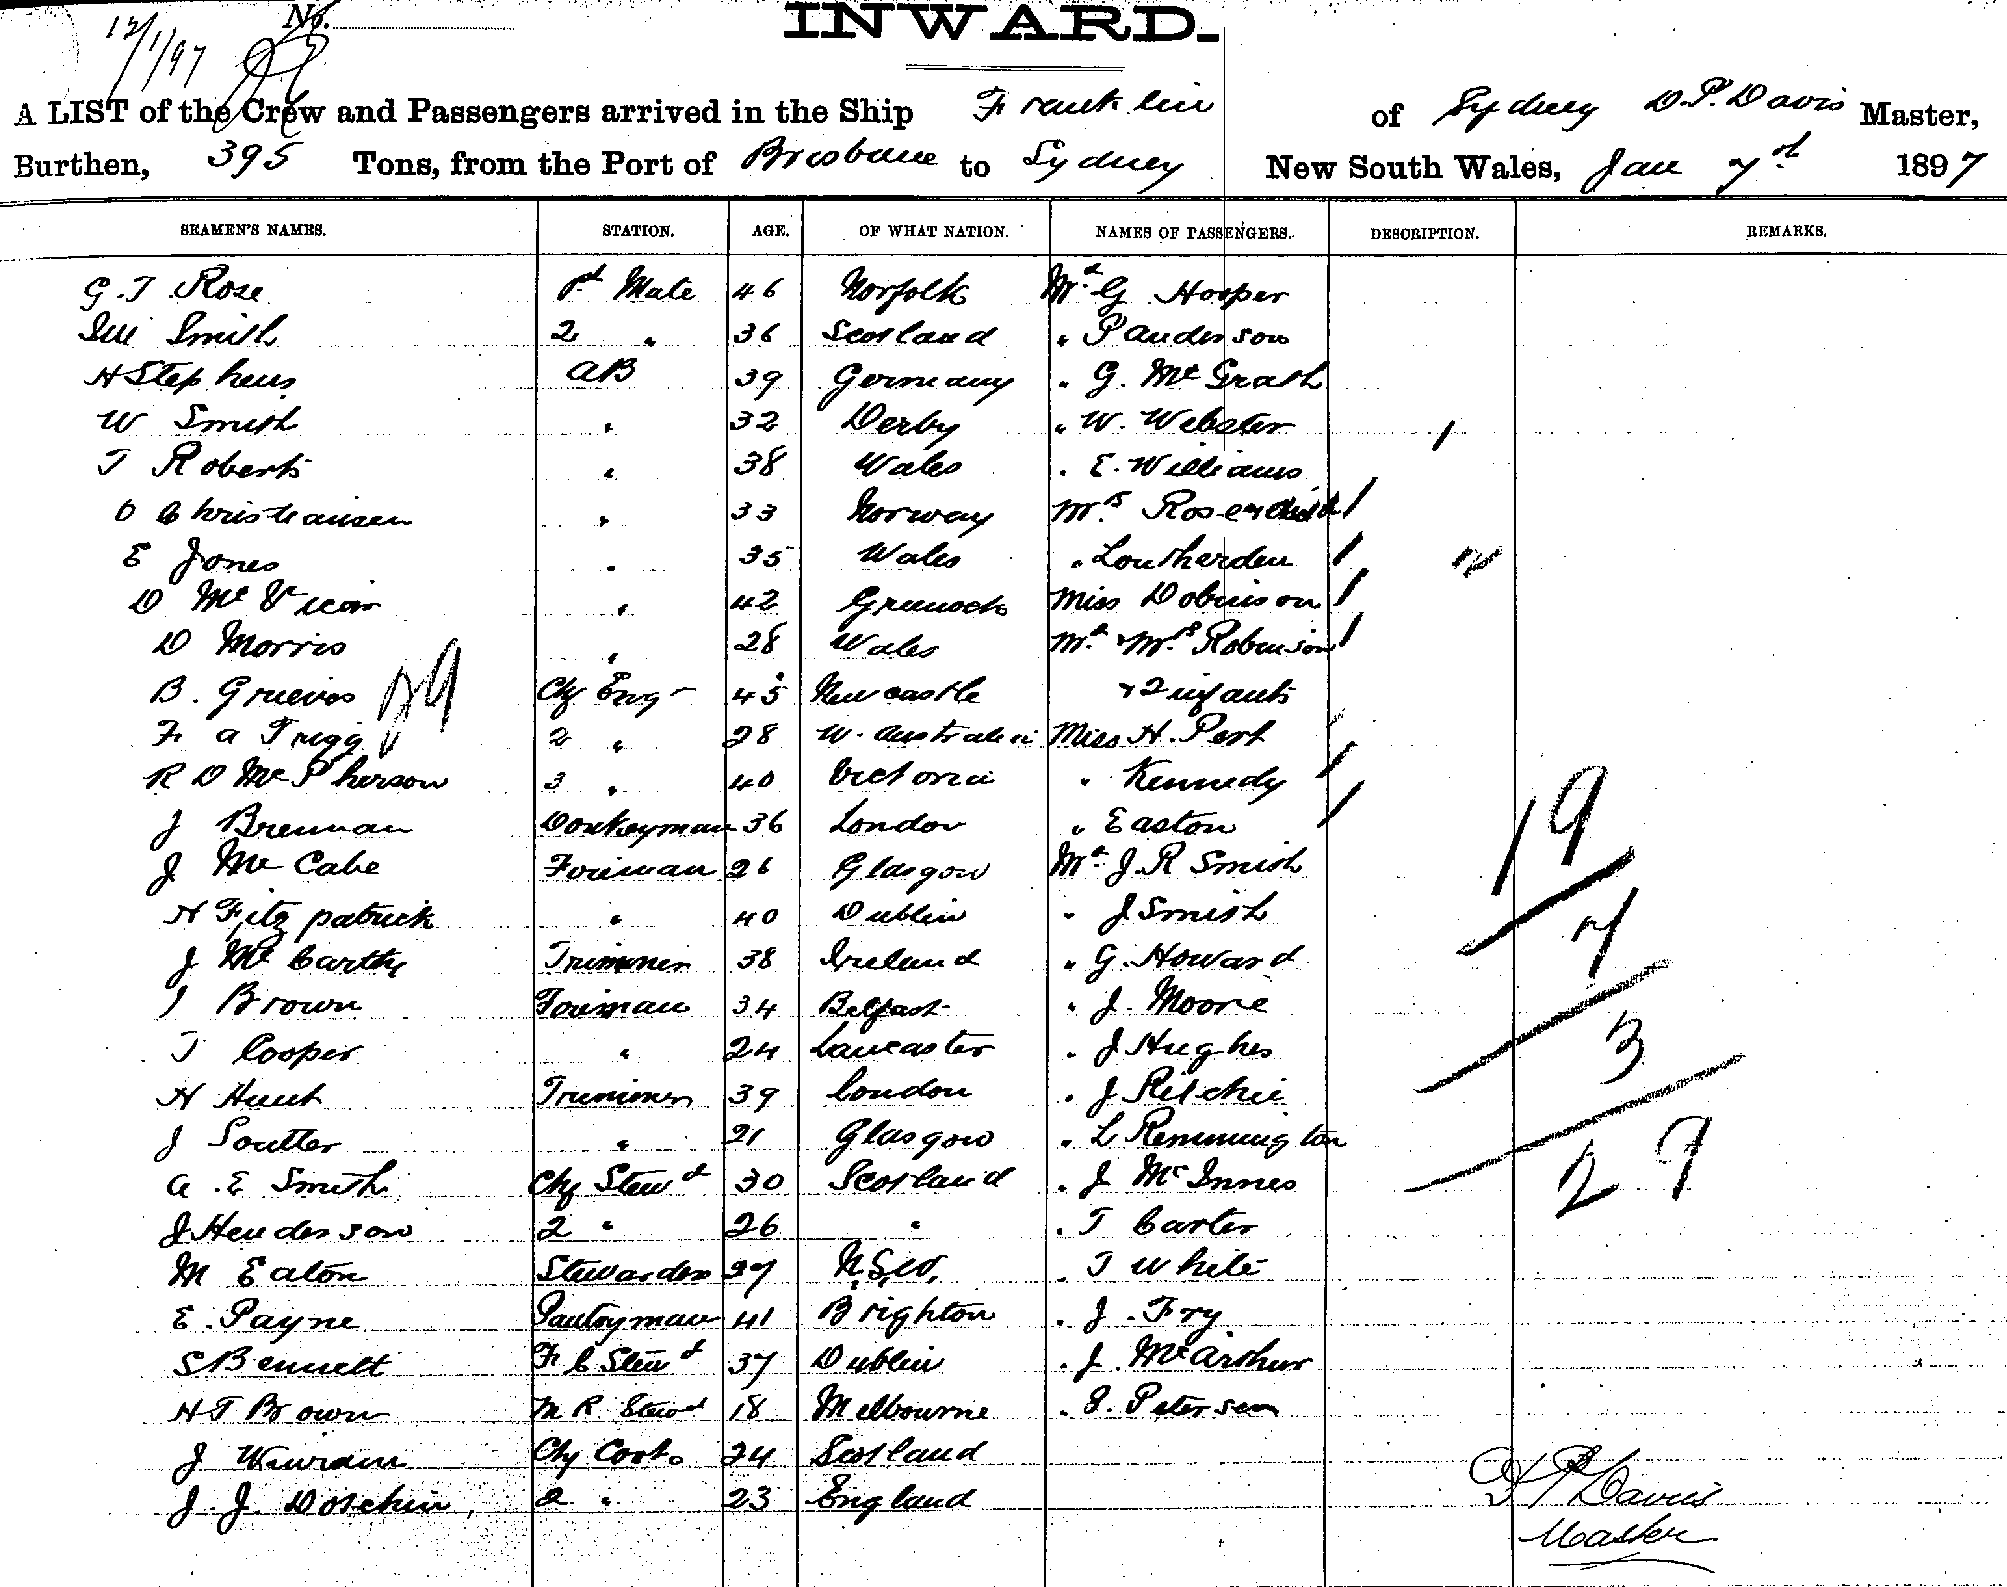 12/1/97 No.
INWARD.
A LIST of the Crew and Passengers arrived in the Ship Franklin of Sydney D.P. Davis Master,
Burthen, 395 Tons, from the Port of Brisbane to Sydney New South Wales, Jan 7th 1897
SEAMEN'S NAMES. STATION. AGE. OF WHAT NATION. NAMES OF PASSENGERS. DESCRIPTION. REMARKS.
G. T. Rose 1st Mate 46 Norfolk Mr. G Hooper
Smith 2 " 36 Scotland " P Anderson
H Stephens AB 39 Germany " G. Mc Grath
W Smith " 32 Derby " W. Webster 1
T Roberts " 38 Wales " E. Williams
O Christiansen " 33 Norway Mrs 1
E Jones " 35 Wales " Loutherden 1 12
D Mc Vicar " 42 Greenock Miss Dobinson 1
D Morris " 28 Wales Mr & Mrs Robinson 1
B. Grieves Chf Eng 45 Newcastle & 2 infants
F A Trigg 2 " 28 W. Australia Miss H. Pert
R D Mc Pherson 3 " 40 Victoria " Kennedy 1
J Brennan Donkeyman 36 London " Easton 1
J Mc Cabe Fireman 26 Glasgow Mr. J. R Smith 19
H Fitzpatrick " 40 Dublin " J Smith 7
J Mc Carthy Trimmer 38 Ireland " G. Howard
J Brown Fireman 34 Belfast " J. Moore
T Cooper " 24 Lancaster " J Hughes 3
H Hunt Trimmer 39 London " J Ritchie
J Soutter " 21 Glasgow " L Remmington
A. E Smith Chf Stewd 30 Scotland " J McInnes 29
J Henderson 2 " 26 " " T Carter
M Eaton Stewardess 37 N.S.W. " T White
E. Payne Pantryman 41 Brighton " J. Fry
S Bennett F C Stewd 37 Dublin " J. Mc Arthur
H T Brown M R. Stewd 18 Melbourne " Petersen
J Chf Cook 24 Scotland
J. J. Dotchin, 2 " 23 England
D P Davis
Master